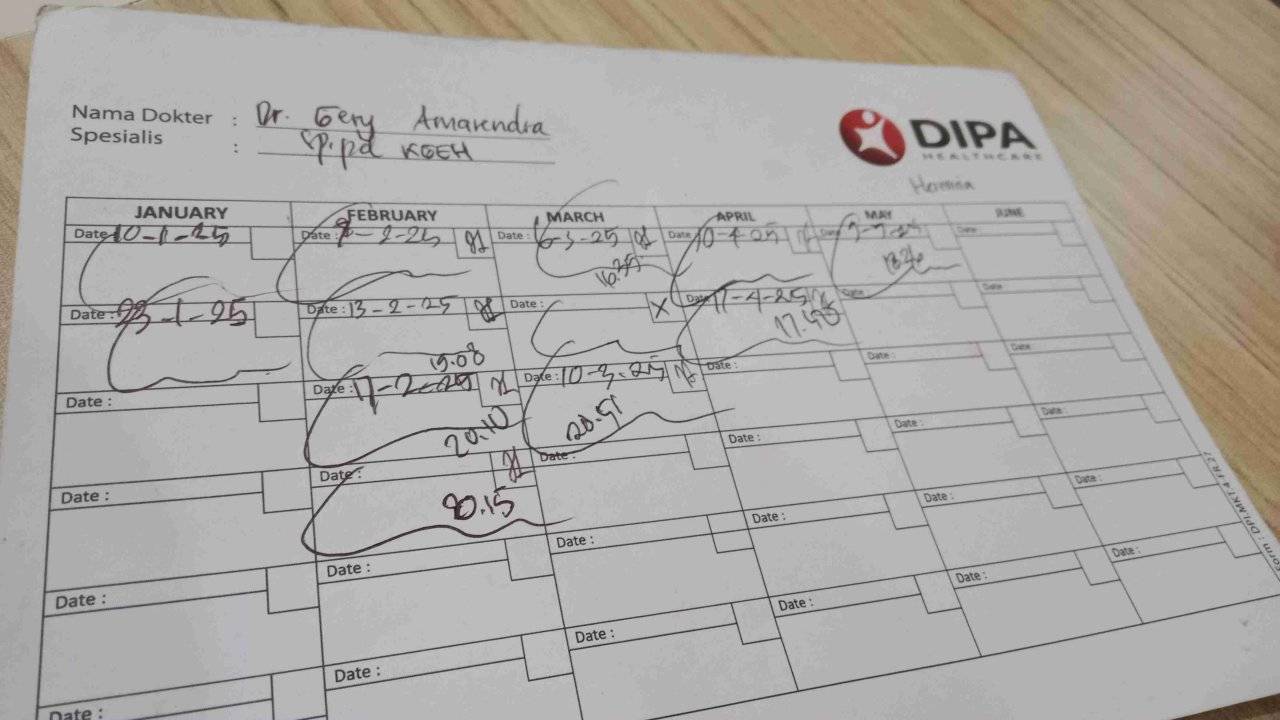 Nama Dokter : Dr. Gery Amarendra
Spesialis : Sp.pd KGEH
DIPA
HEALTHCARE
Hermina
JANUARY FEBRUARY MARCH APRIL MAY JUNE
Date: 10-1-25 Date: 7-2-25 Date: 6-3-25 Date: 10-4-25 Date: Date:
16.35
Date: 23-1-25 Date: 13-2-25 Date: X Date: 17-4-25 Date: Date:
19.08 17.45
Date : Date : 17-2-25 Date : 10-3-25 Date : Date : Date :
20.10 20.51
Date : Date : Date : Date : Date : Date :
20.15
Date : Date : Date : Date : Date : Date :
Date : Date : Date : Date : Date : Date :
Form : DPI.MKT.4-FR.27